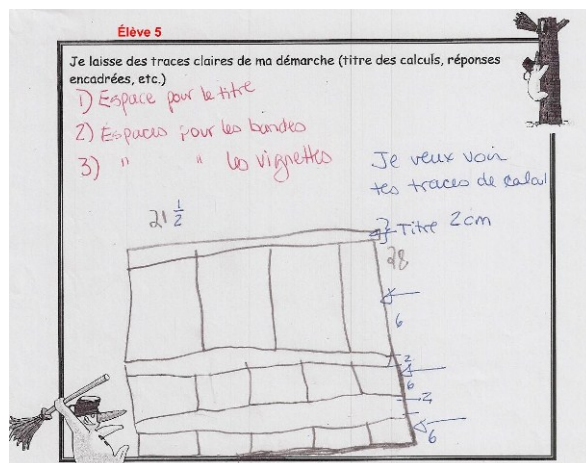 Élève 5
Je laisse des traces claires de ma démarche (titre des calculs, réponses
encadrées, etc.)
1) Espace pour le titre
2) Espaces pour les bandes
3) " " les vignettes
Je veux voir
tes traces de calcul
21 1/2
Titre 2cm
28
6
2
6
2
6